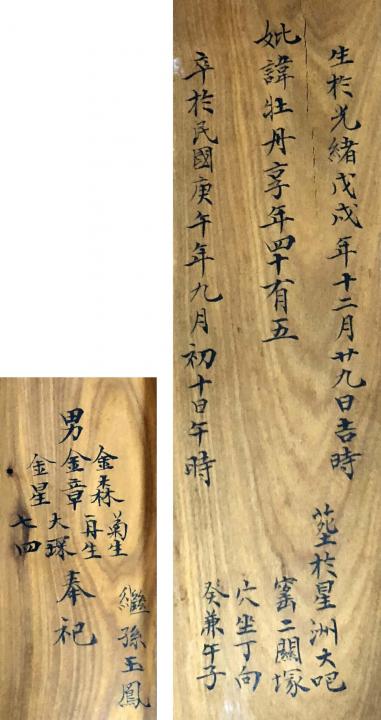 生於光緒戊戌年十二月廿九日吉時
妣諱牡丹享年四十有五
卒於民國庚午年九月初十日午時
塟於星洲大吧
窰二關塚
穴坐丁向
癸兼午子
男
金森 菊生
金章 再生
金星 大琛
七四
奉祀
繼孫玉鳳